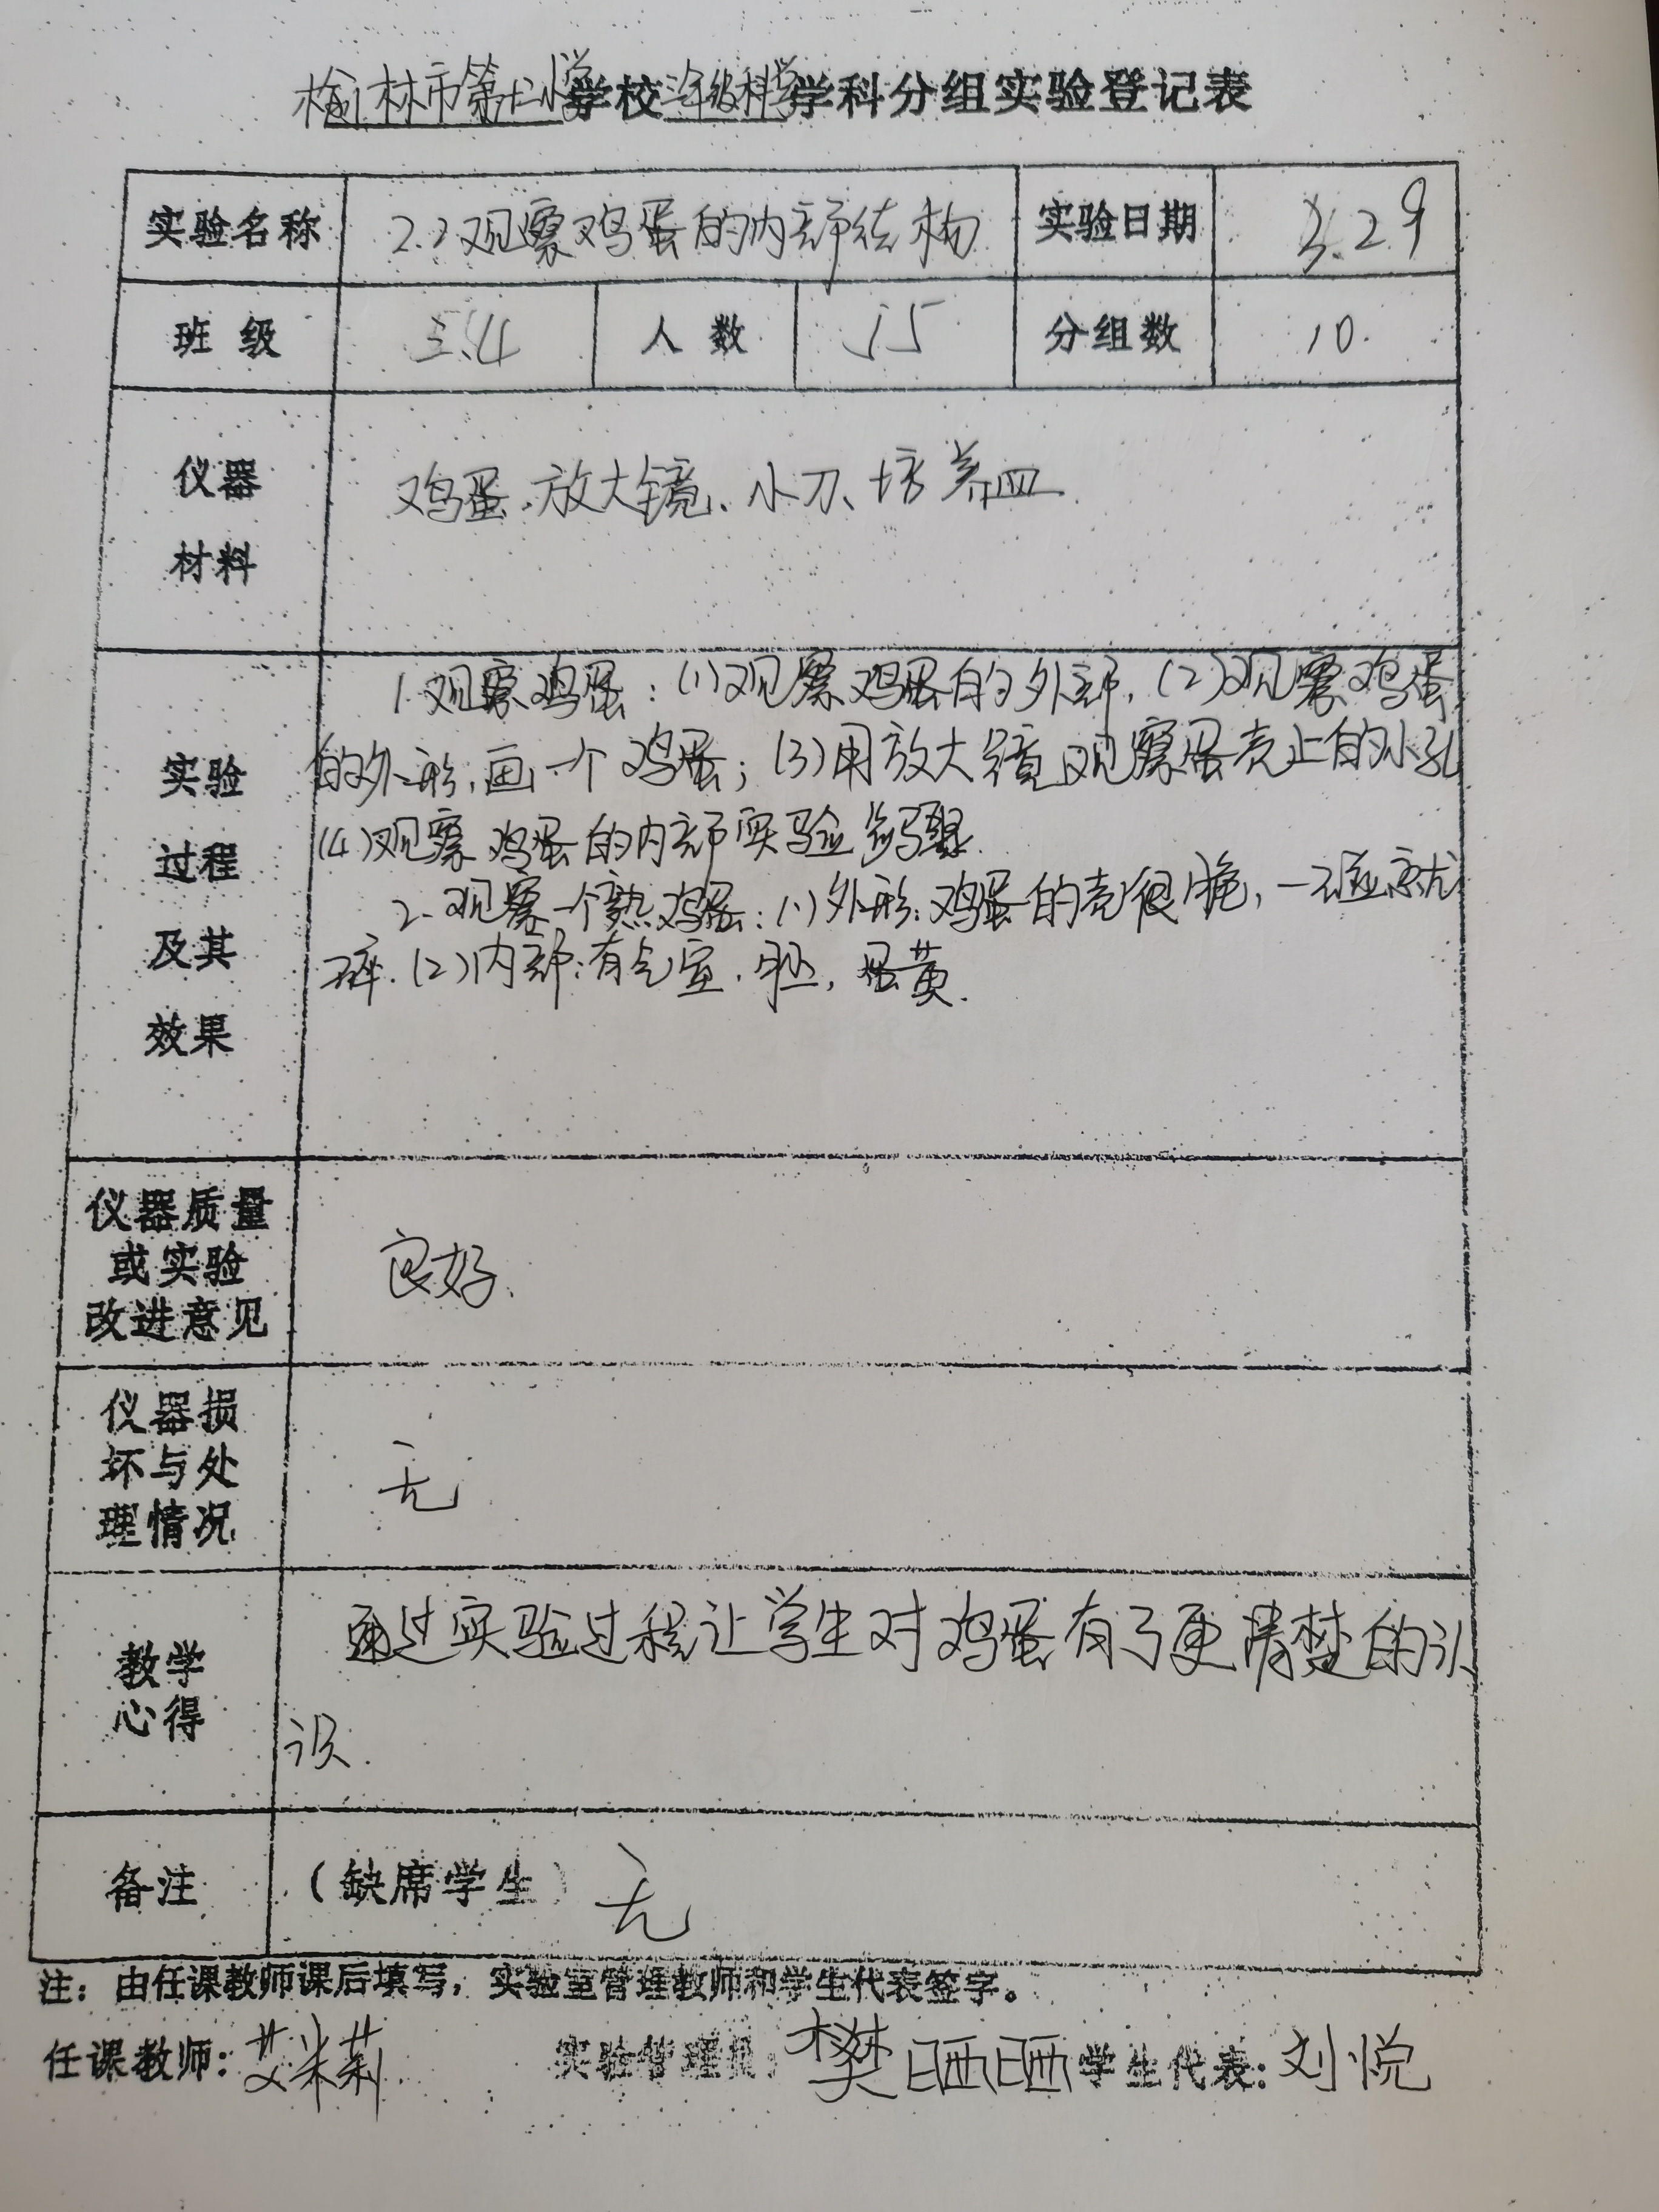 榆林市第十二小学学校三年级科学学科分组实验登记表
实验名称 2.2观察鸡蛋的内部结构 实验日期 3.29
班级 三.4 人数 55 分组数 10.
仪器材料 鸡蛋、放大镜、小刀、培养皿.
实验过程及其效果
1.观察鸡蛋:(1)观察鸡蛋的外部,(2)观察鸡蛋
的外形,画一个鸡蛋;(3)用放大镜观察蛋壳上的小孔
(4)观察鸡蛋的内部实验步骤.
2.观察一个熟鸡蛋:(1)外形:鸡蛋的壳很脆,一碰就
碎.(2)内部:有气室.胚,蛋黄.
仪器质量或实验改进意见 良好.
仪器损坏与处理情况 无
教学心得 通过实验过程让学生对鸡蛋有了更清楚的认
识.
备注 (缺席学生) 无
注:由任课教师课后填写,实验室管理教师和学生代表签字。
任课教师:艾米莉 实验管理员:樊晒晒 学生代表:刘悦